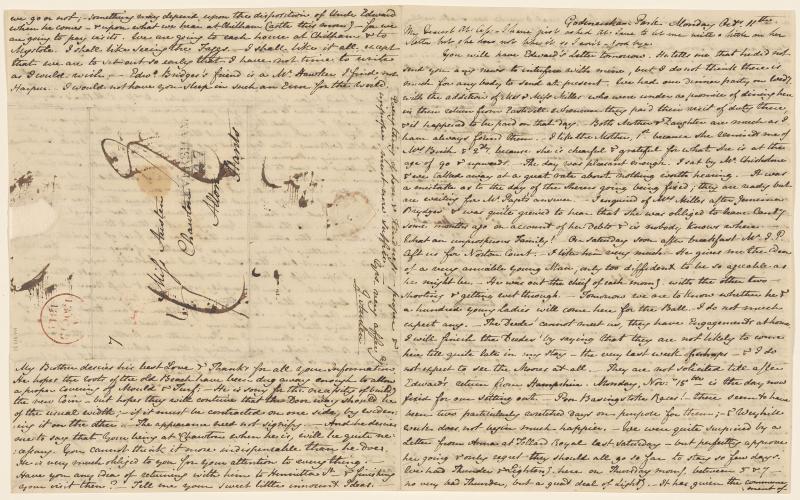 we go or not; Something may depend upon the disposition of Uncle Edward
when he comes - & upon what we hear at Chilham Castle this morng - for we
are going to pay visits. We are going to each house at Chilham & to
Mystole. I shall like seeing the Faggs. - I shall like it all, except
that we are to set out so early that I have not time to write
as I would wish. - Edwd Bridges's friend is a Mr. Hawker I find, not
Harpur. I would not have you sleep in such an Error for the world.
Miss Austen
Chawton
Alton
Hants
FEVERSHAM
yrs very affecly
J. Austen
7
My Brother desires his best Love & Thanks for all your Information.
He hopes the roots of the old Beech have been dug away enough to allow
a proper covering of Mould & Turf. - He is sorry for the necessity of building
the new Coin - but hopes they will contrive that the Doorway should be
of the usual width; - if it must be contracted on one side, by widen-
ing it on the other. - The appearance need not signify. - And he desires
me to say that your being at Chawton when he is, will be quite ne-
cessary. You cannot think it more indispensable than he does.
He is very much obliged to you for your attention to everything. -
Have you any idea of returning with him to Henrietta St & finishing
your visit then? - Tell me your sweet little innocent Ideas.
Godmersham Park - Monday Octr 11th
You will have Edward's Letter tomorrow. He tells me that he did not
send you any news to interfere with mine, but I do not think there is
much for anybody to send at present. We had our dinner party on Wedy
with the addition of Mrs & Miss Milles who were under a promise of dining here
in their return from Eastwell whenever they paid their visit of duty there,
& it happened to be paid on that day. - Both Mother & Daughter are much as I
have always found them. - I like the Mother, 1st because she reminds me of
Mrs Birch & 2dly because she is chearful & grateful for what she is at the
age of 90 & upwards. - The day was pleasant enough. I sat by Mr Chisholme
& we talked away at a great rate about nothing worth hearing. - It was
a mistake as to the day of the Sherers going being fixed; they are ready but
are waiting for Mr Paget's answer. - I enquired of Mrs Milles after Jemima
Brydges & was quite grieved to hear that she was obliged to leave Canty
some months ago on account of her Debts & is nobody knows where. -
What an unprosperous Family! - On Saturday soon after breakfast Mr. J. P.
left us for Norton Court. - I like him very much. - He gives me the idea
of a very amiable young Man, only too diffident to be so agreable as
he might be. - He was out the chief of each morng with the other two -
shooting & getting wet through. - Tomorrow we are to know whether he &
a hundred young Ladies will come here for the Ball. - I do not much
expect any. - The Deedes' cannot meet us, they have Engagements at home.
I will finish the Deedes' by saying that they are not likely to come
here till quite late in my stay - the very last week perhaps - & I do
not expect to see the Moores at all. - They are not solicited till after
Edward's return from Hampshire. Monday, Novr 15th is the day now
fixed for our setting out. - Poor Basingstoke Races! - there seem to have
been two particularly wretched days on purpose for them; - & Weyhill
week does not begin much happier. - We were quite surprised by a
Letter from Anna at Tollard Royal last Saturday - but perfectly approve
her going & only regret they should all go so far, to stay so few days.
We had Thunder & Lightning here on Thursday morng, between 5 & 7 -
no very bad Thunder, but a great deal of Lightng. - It has given the commence-
ment of